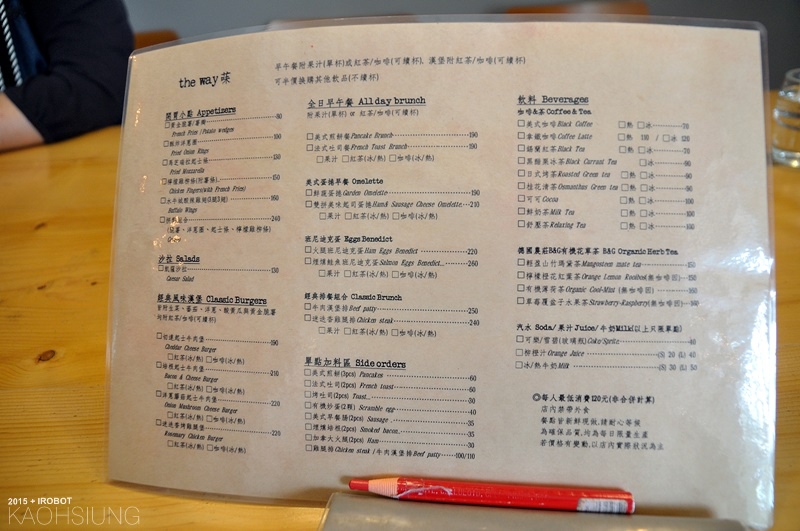 the way
早午餐附果汁(單杯)或紅茶/咖啡(可續杯), 漢堡附紅茶/咖啡(可續杯)
可半價換購其他飲品(不續杯)
開胃小點 Appetizers
French Fries / Potato wedges
鮮炸洋蔥圈 100
Fried Onion Rings
Fried Mozzarella
檸檬雞柳條(附薯條) 150
Chicken Fingers(with French Fries)
Buffalo Wings 160
240
(菜薯、洋蔥圈、起士條、檸檬雞柳條)
沙拉 Salads
凱薩沙拉 130
Caesar Salad
經典風味漢堡 Classic Burgers
皆附生菜、蕃茄、洋蔥、酸黃瓜與黃金脆薯
均附紅茶/咖啡(可續杯)
切達起士牛肉堡 190
Cheddar Cheese Burger
□紅茶(冰/熱) □咖啡(冰/熱)
培根起士牛肉堡 210
Bacon & Cheese Burger
□紅茶(冰/熱) □咖啡(冰/熱)
洋蔥蘑菇起士牛肉堡 220
Onion Mushroom Cheese Burger
□紅茶(冰/熱) □咖啡(冰/熱)
迷迭香烤雞腿堡 220
Rosemary Chicken Burger
□紅茶(冰/熱) □咖啡(冰/熱)
全日早午餐 All day brunch
附果汁(單杯) or 紅茶/咖啡(可續杯)
□美式煎餅餐 Pancake Brunch 190
□法式吐司餐 French Toast Brunch 190
□果汁 □紅茶(冰/熱) □咖啡(冰/熱)
美式蛋捲早餐 Omelette
□鮮蔬蛋捲 Garden Omelette 190
□雙拼美味起司蛋捲 Ham& Sausage Cheese Omelette 210
□果汁 □紅茶(冰/熱) □咖啡(冰/熱)
班尼迪克蛋 Eggs Benedict
□火腿班尼迪克蛋 Ham Eggs Benedict 220
□煙燻鮭魚班尼迪克蛋 Salmon Eggs Benedict 260
□果汁 □紅茶(冰/熱) □咖啡(冰/熱)
經典排餐組合 Classic Brunch
□牛肉漢堡排 Beef patty 250
□迷迭香雞腿排 Chicken steak 240
□果汁 □紅茶(冰/熱) □咖啡(冰/熱)
單點加料區 Side orders
□美式煎餅(2pcs) Pancakes 60
□法式吐司(2pcs) French toast 60
□烤吐司(2pcs) Toast 30
□有機炒蛋(2顆) Scramble egg 40
□美式早餐腸(2pcs) Sausage 50
□煙燻培根(2pcs) Smoked bacon 50
□加拿大火腿(2pcs) Ham 30
□雞腿排 Chicken steak / 牛肉漢堡排 Beef patty 100/110
飲料 Beverages
咖啡&茶 Coffee & Tea
□美式咖啡 Black Coffee □熱 □冰 70
□拿鐵咖啡 Coffee Latte □熱 110 / □冰 120
□錫蘭紅茶 Black Tea □熱 □冰 70
□黑醋栗冰茶 Black Currant Tea □冰 90
□日式烤茶 Roasted Green tea □熱 □冰 90
□桂花清茶 Osmanthus Green tea □熱 □冰 90
□可可 Cocoa □熱 □冰 100
□鮮奶茶 Milk Tea □熱 □冰 100
□舒壓茶 Relaxing Tea □熱 □冰 100
德國農莊B&G有機花草茶 B&G Organic Herb Tea
□輕盈山竹瑪黛茶 Mangosteen mate tea 150
□檸檬橙花紅葉茶 Orange Lemon Rooibos(無咖啡因) 150
□有機薄荷茶 Organic Cool-Mint (無咖啡因) 150
□草莓覆盆子水果茶 Strawberry-Raspberry(無咖啡因) 160
汽水 Soda/果汁 Juice/牛奶Milk(以上只限單點)
□可樂/雪碧(玻璃瓶) Coke/Sprite 40
□柳橙汁 Orange Juice (S) 20 (L) 40
□冰/熱牛奶 Milk (S) 30 (L) 50
◎每人最低消費120元(非合併計算)
店內禁帶外食
餐點皆新鮮現做,請耐心等候
為確保品質,均為每日限量生產
若價格有變動,以店內實際狀況為主
2015 + IROBOT
KAOHSIUNG